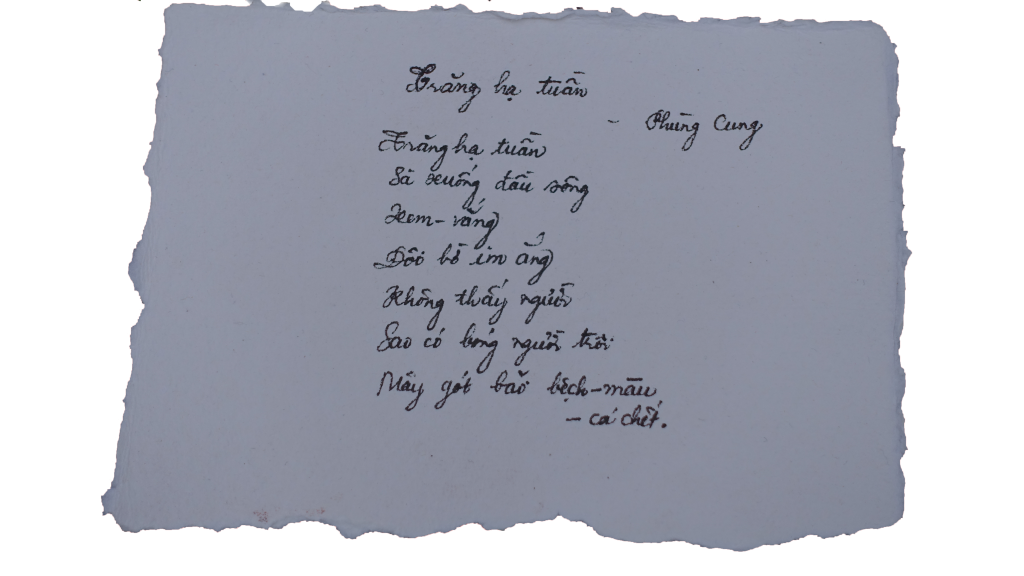 Trăng hạ tuần
- Phùng Cung
Trăng hạ tuần
Sà xuống đầu sông
Xem-vắng
Đôi bờ im ắng
Không thấy người
Sao có bóng người trôi
Mây gót bão bệch-màu
- cá chết.